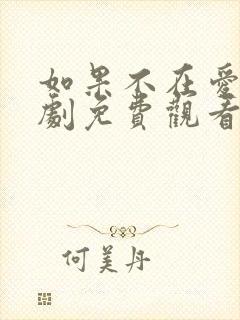 如果不在愛
劇免費觀看
何美丹